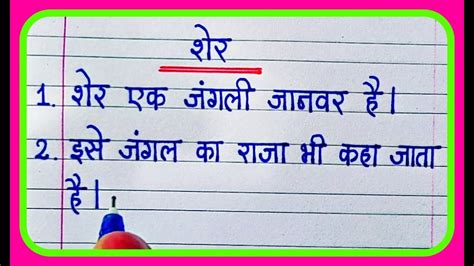 शेर
1. शेर एक जंगली जानवर है।
2. इसे जंगल का राजा भी कहा जाता
है।